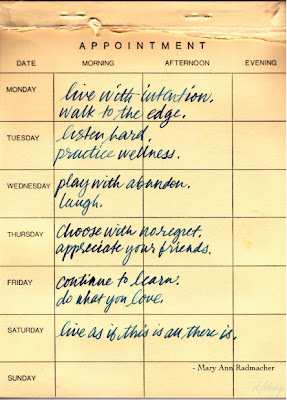 APPOINTMENT
DATE MORNING AFTERNOON EVENING
MONDAY live with intention.
walk to the edge.
TUESDAY listen hard.
practice wellness.
WEDNESDAY play with abandon.
laugh.
THURSDAY choose with no regret.
appreciate your friends.
FRIDAY continue to learn.
do what you love.
SATURDAY live as if this is all there is.
- Mary Ann Radmacher
SUNDAY